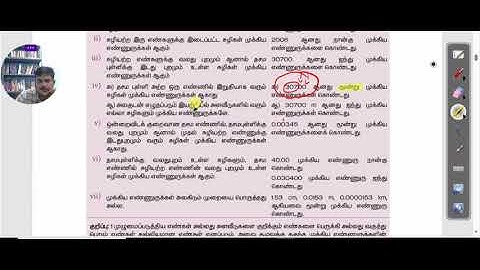 ii) சுழியற்ற இரு எண்களுக்கு இடைப்பட்ட சுழிகள் முக்கிய எண்ணுருக்கள் ஆகும்
2008 ஆனது நான்கு முக்கிய எண்ணுருக்களை கொண்டது.
iii) சுழியற்ற எண்களுக்கு வலது புறமும் ஆனால் தசம புள்ளிக்கு இடது புறமும் உள்ள சுழிகள் முக்கிய எண்ணுருக்கள் ஆகும்.
30700. ஆனது ஐந்து முக்கிய எண்ணுருக்களை கொண்டது.
iv) அ) தசம புள்ளி அற்ற ஒரு எண்ணில் இறுதியாக வரும் சுழிகள் முக்கிய எண்ணுருக்கள் ஆகாது
அ) 30700 ஆனது மூன்று முக்கிய எண்ணுருக்களை கொண்டது.
எல்லா சுழிகளும் முக்கிய எண்ணுருக்களே.
ஆ) 30700 m ஆனது ஐந்து முக்கிய எண்ணுருக்களை கொண்டது
v) ஒன்றைவிடக் குறைவான தசம எண்ணில், தசமபுள்ளிக்கு வலது புறமும் ஆனால் முதல் சுழியற்ற எண்ணுக்கு இடதுபுறமும் வரும் சுழிகள் முக்கிய எண்ணுருக்கள் ஆகாது.
0.00345 ஆனது மூன்று முக்கிய எண்ணுருக்களைக் கொண்டது.
vi) தசமபுள்ளிக்கு வலதுபுறம் உள்ள சுழிகளும், தசம எண்ணில் சுழியற்ற எண்ணின் வலது புறமும் வரும் சுழிகள் முக்கிய எண்ணுருக்கள் ஆகும்.
40.00 முக்கிய எண்ணுரு நான்கு கொண்டது.
0.030400 முக்கிய எண்ணுரு ஐந்து கொண்டது.
vii) முக்கிய எண்ணுருக்கள் அலகிடும் முறையை பொருத்தது அல்ல.
153 cm, 0.0153 m, 0.0000153 km, ஆகியவை மூன்று முக்கிய எண்ணுரு கொண்டது.